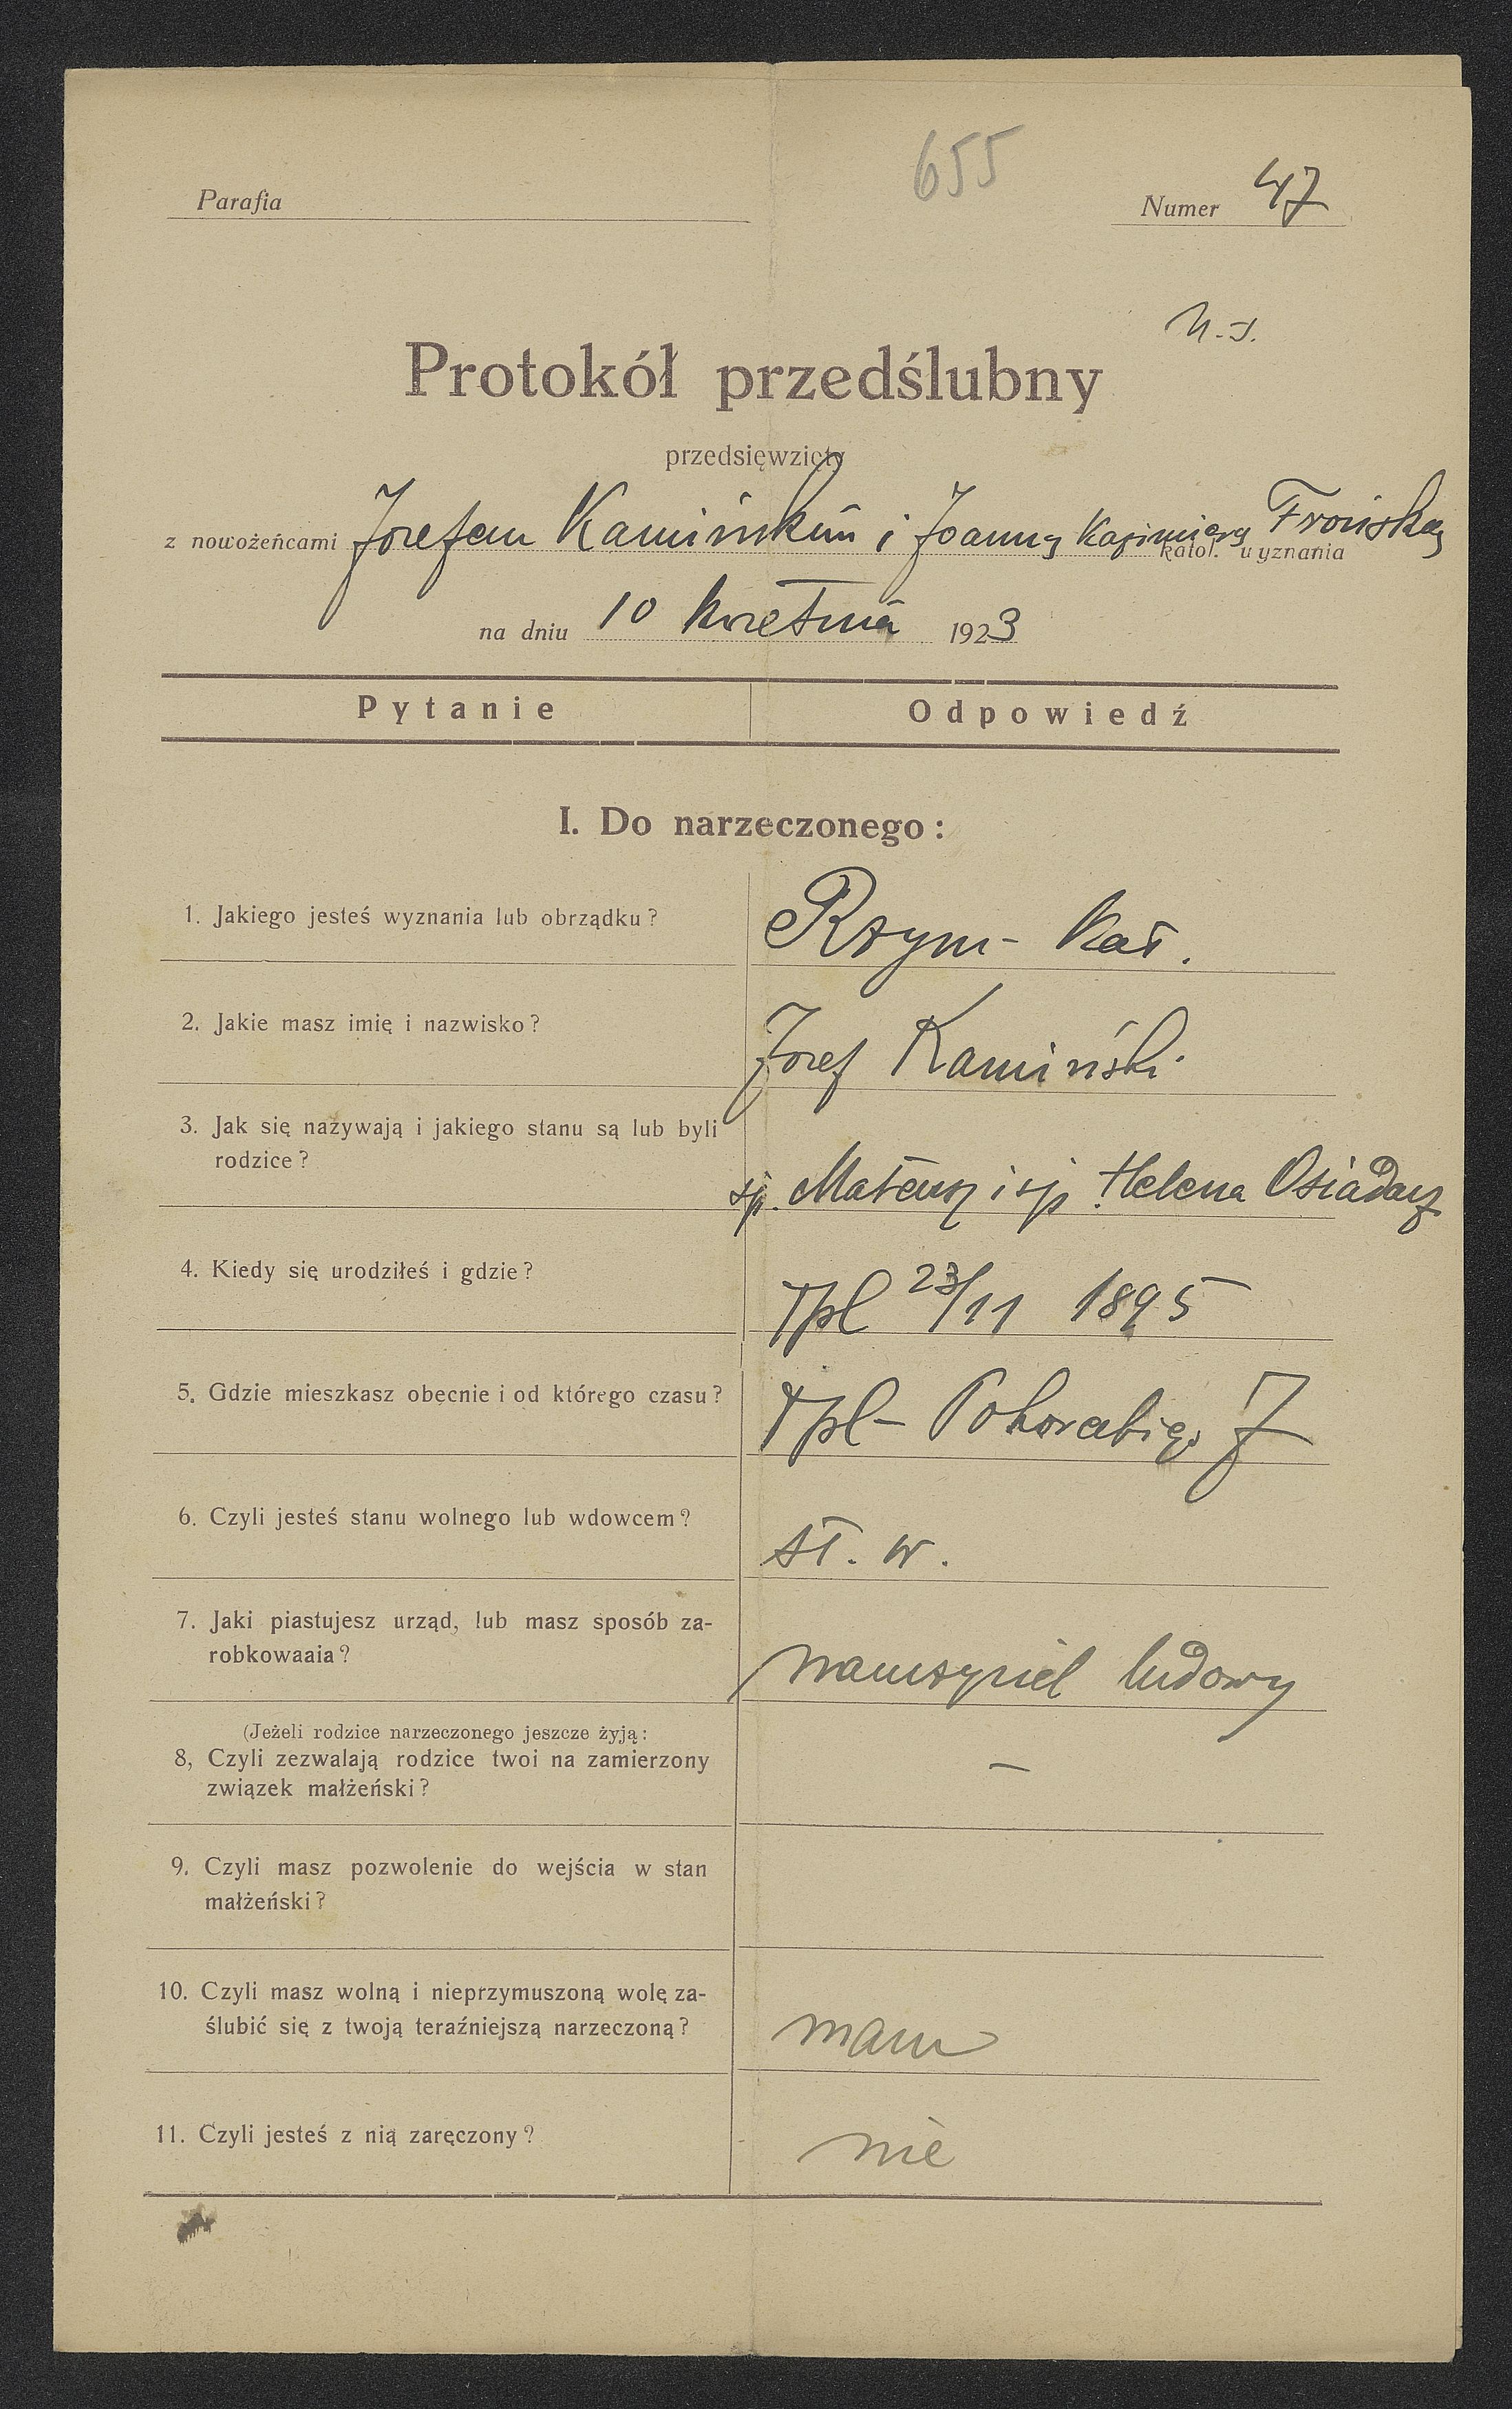 655
Parafia
Numer 47
Protokół przedślubny
przedsięwzięty
z nowożeńcami Józefem Kamińskim i Joanną Kazimierą Frońską
katol. wyznania
na dniu 10 kwietnia 1923
Pytanie Odpowiedź
I. Do narzeczonego:
1. Jakiego jesteś wyznania lub obrządku? Rzym- kat.
2. Jakie masz imię i nazwisko? Józef Kamiński
3. Jak się nazywają i jakiego stanu są lub byli
rodzice? śp. Mateusz i śp Helena Osiadacz
4. Kiedy się urodziłeś i gdzie? Tpl 23/11 1895
5. Gdzie mieszkasz obecnie i od którego czasu? Tpl- 7
6. Czyli jesteś stanu wolnego lub wdowcem? st. w.
7. Jaki piastujesz urząd, lub masz sposób za-
robkowaaia? nauczyciel ludowy
(Jeżeli rodzice narzeczonego jeszcze żyją:
8, Czyli zezwalają rodzice twoi na zamierzony
związek małżeński? —
9. Czyli masz pozwolenie do wejścia w stan
małżeński?
10. Czyli masz wolną i nieprzymuszoną wolę za-
ślubić się z twoją teraźniejszą narzeczoną? mam
11. Czyli jesteś z nią zaręczony? nie